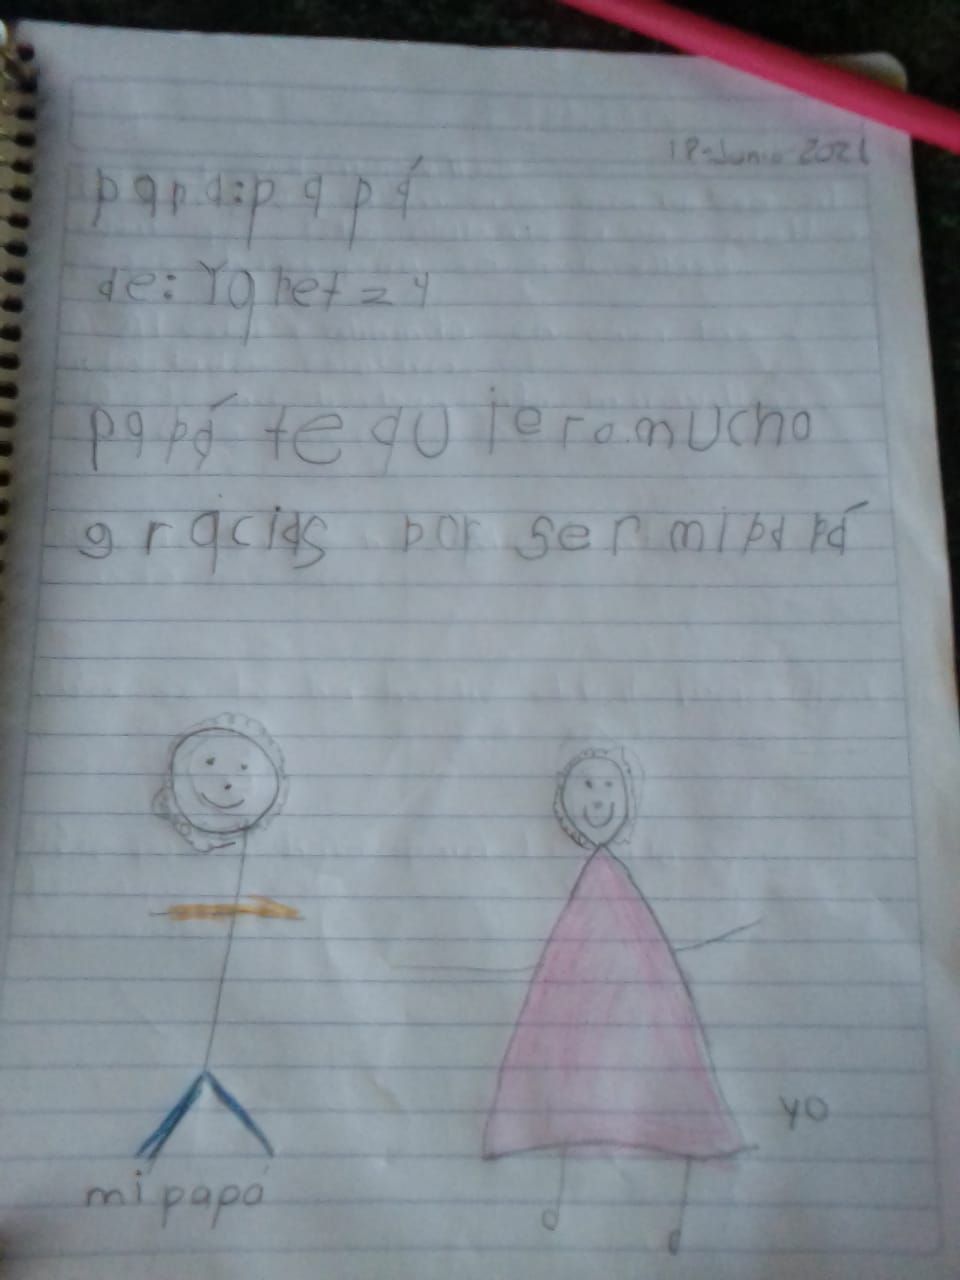 18-Junio 2021
para: papá
de: Yaretza
papá te quiero mucho
gracias por ser mi papá
yo
mi papá